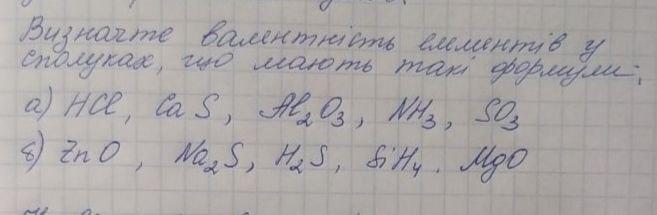 Визначте валентність елементів у
сполуках, що мають такі формули:
а) HCl, CaS, Al₂O₃, NH₃, SO₃
б) ZnO, Na₂S, H₂S, SiH₄. MgO